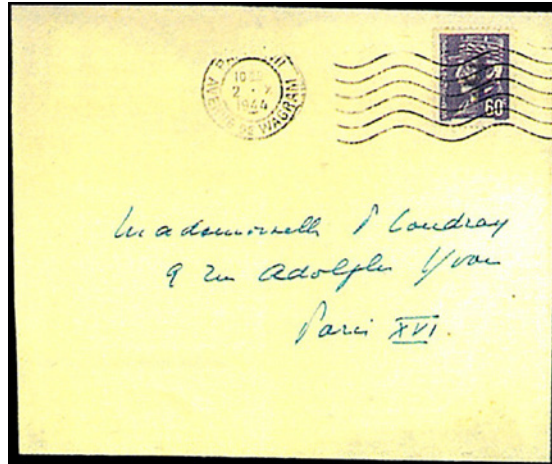 10
2 · X
1944
AVENUE DE WAGRAM
60
Mademoiselle P Coudray
9 rue Adolphe Yvon
Paris XVI